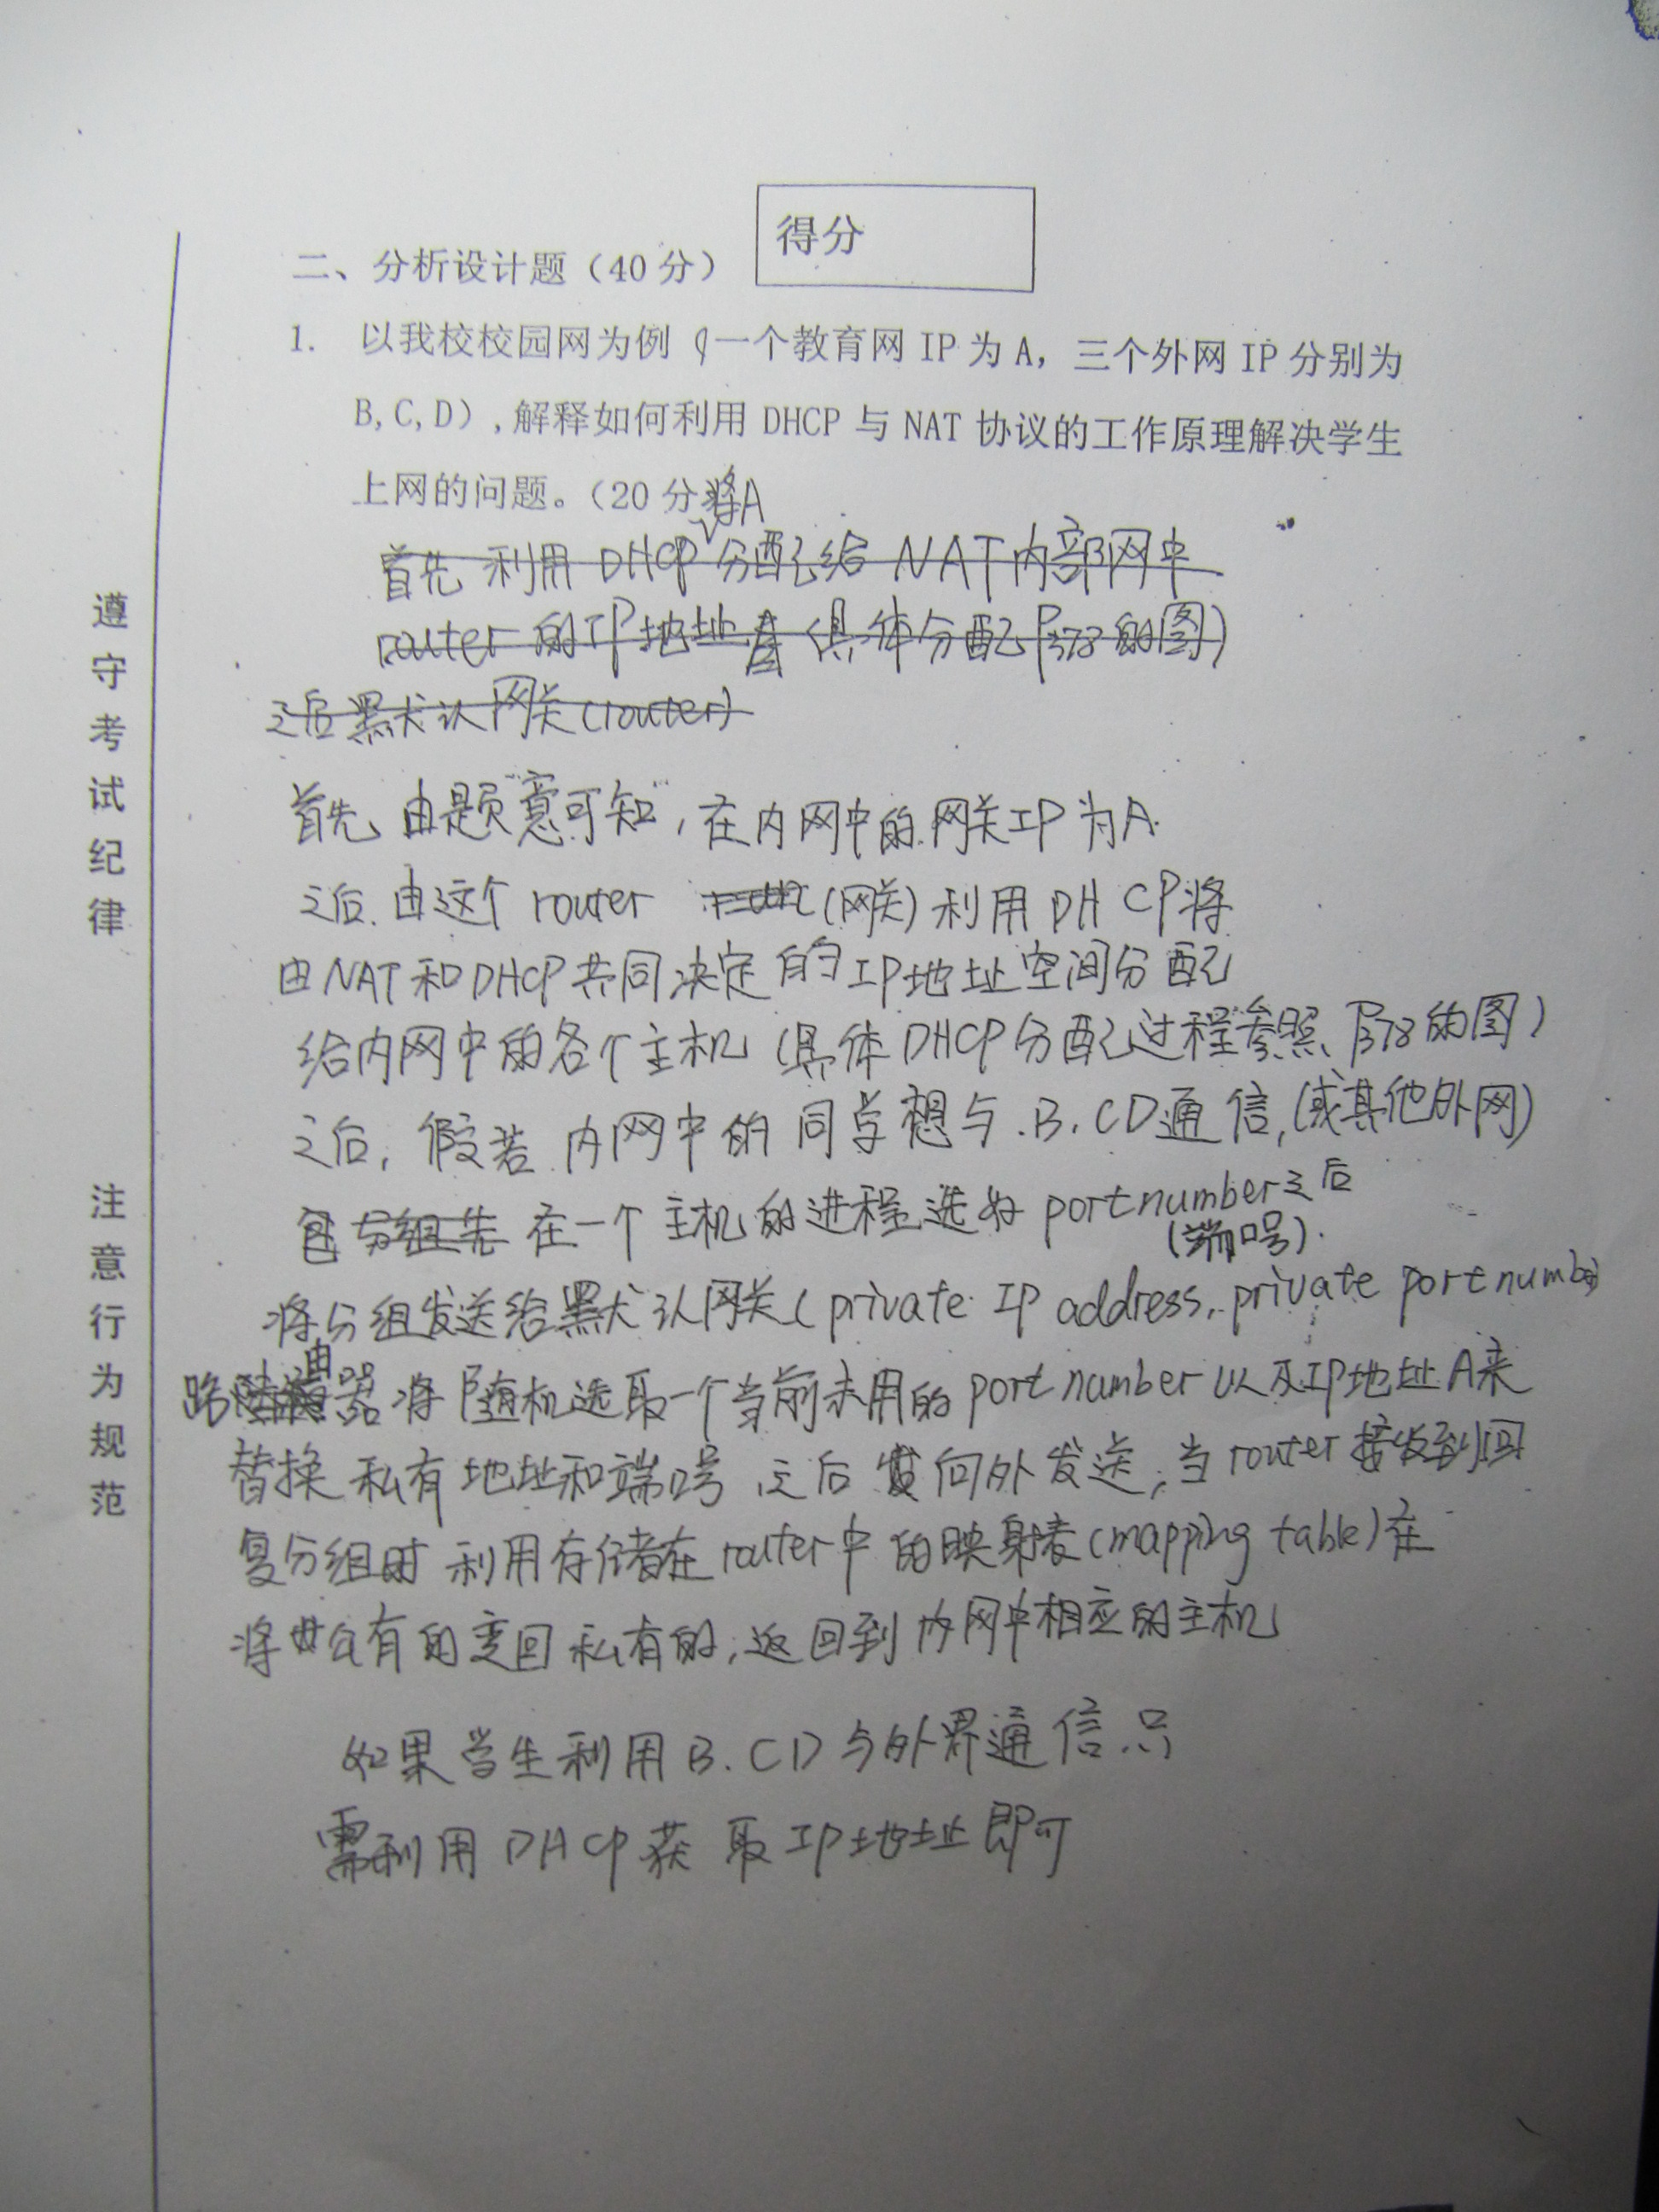 得分
二、分析设计题（40分）
1. 以我校校园网为例（一个教育网 IP 为 A，三个外网 IP 分别为
B,C,D），解释如何利用 DHCP 与 NAT 协议的工作原理解决学生
上网的问题。（20 分
将A
首先 利用 DHCP 分配给 NAT内部网中
router 的IP地址 (具体分配P378的图)
之后默认网关(router)
首先 由题"意可知", 在内网中的网关IP为A.
之后.由这个 router (网关) 利用 DHCP将
由NAT和DHCP共同决定的IP地址空间分配
给内网中的各个主机 (具体DHCP分配过程参照P378的图)
之后, 假若 内网中的 同学想与.B.CD通信,(或其他外网)
包 分组先 在一个 主机的进程选好 port number之后
(端口号).
将分组发送给默认网关(private IP address, private port number
路由器 将随机选取一个当前未用的 port number 以及IP地址A来
替换 私有 地址和端口号 之后 向外发送, 当router接收到回
复分组时 利用存储在router中的映射表(mapping table)在
将公有的变回私有的, 返回到内网中相应的主机
如果学生利用B.CD与外界通信只
需利用DHCP获取IP地址即可
遵守考试纪律
注意行为规范